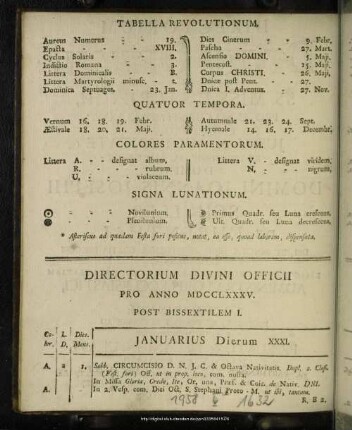 TABELLA REVOLUTIONUM.
Aureus Numerus - - 19.
Epacta - - - XVIII.
Cyclus Solaris - - 2.
Indictio Romana - - 3.
Littera Dominicalis - - B.
Littera Martyrologii minusc. - t.
Dominica Septuages. - 23. Jan.
Dies Cinerum - - 9. Febr.
Pascha - - - 27. Mart.
Ascensio DOMINI. - 5. Maji.
Pentecost. - - - 15. Maji.
Corpus CHRISTI. - - 26. Maji.
Dnicæ post Pent. - - 27.
Dnica I. Adventus. - 27. Nov.
QUATUOR TEMPORA.
Vernum 16. 18. 19. Febr.
Æstivale 18. 20. 21. Maji.
Autumnale 21. 23. 24. Sept.
Hyemale 14. 16. 17. Decembr.
COLORES PARAMENTORUM.
Littera A. - - designat album,
R. - - - rubrum.
U. - - - violaceum.
Littera V. - designat viridem,
N. - - - nigrum.
SIGNA LUNATIONUM.
- - - Novilunium.
- - - Plenilunium.
Primus Quadr. seu Luna crescens.
Ult. Quadr. seu Luna decrescens.
* Asteriscus ad quædam Festa fori positus, notat, ea esse, quoad laborem, dispensata.
DIRECTORIUM DIVINI OFFICII
PRO ANNO MDCCLXXXV.
POST BISSEXTILEM I.
Co- L. Dies.
lor. D. Mens.
JANUARIUS Dierum XXXI.
A. a 1. Sabb. CIRCUMCISIO D. N. J. C. & Octava Nativitatis. Dupl. 2. Class.
(Fest. fori) Off. ut in prop. loco, com. nulla.
In Missa Gloria, Grad., Ite, Or. una, Præf. & Com. de Nativ. DNI.
A. In 2. Vesp. com. Diei Oct. S. Stephani Proto-M. ut ibi, tantum.
R. B 2.
1958 1652